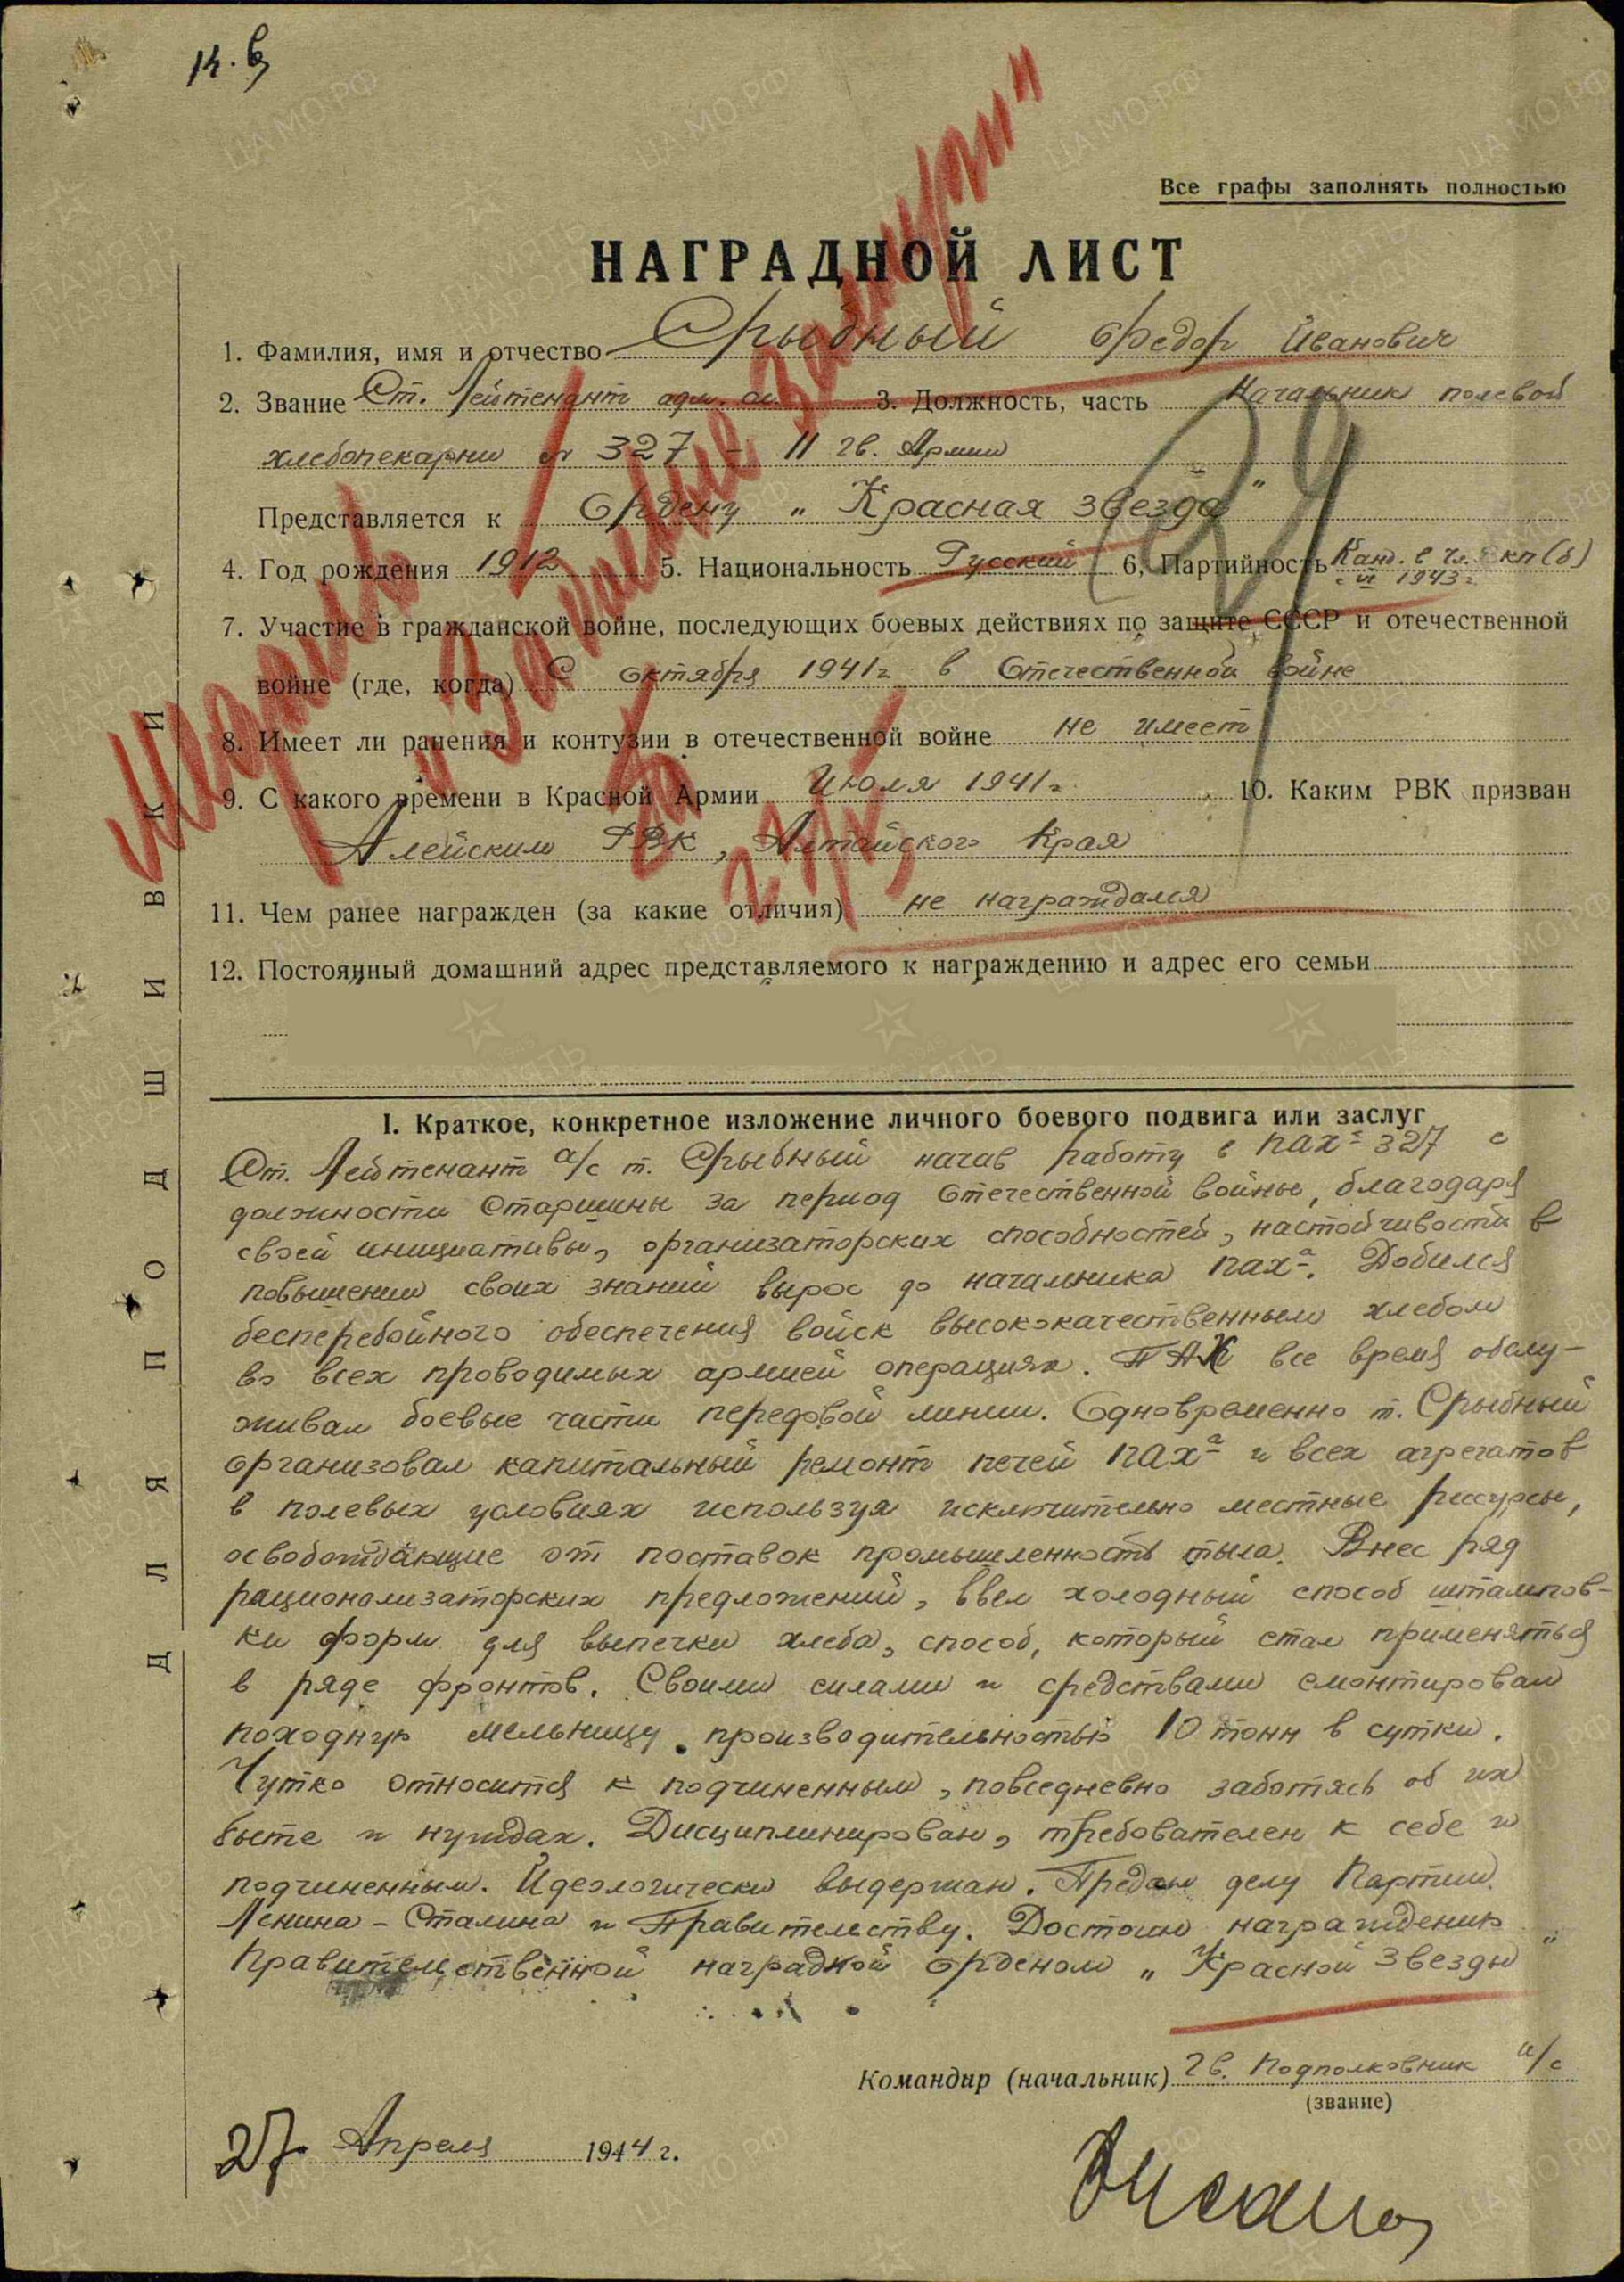 Все графы заполнять полностью
НАГРАДНОЙ ЛИСТ
1. Фамилия, имя и отчество Срыбный Федор Иванович
2. Звание Ст. Лейтенант адм. сл. 3. Должность, часть Начальник полевой
хлебопекарни № 327 - 11 гв. Армии
Представляется к Ордену „Красная звезда"
4. Год рождения 1912 5. Национальность Русский 6. Партийность Канд. в чл. ВКП(б)
с VI 1943 г.
7. Участие в гражданской войне, последующих боевых действиях по защите СССР и отечественной
войне (где, когда) С октября 1941 г. в Отечественной войне
8. Имеет ли ранения и контузии в отечественной войне не имеет
9. С какого времени в Красной Армии Июля 1941 г. 10. Каким РВК призван
Алейским РВК, Алтайского Края
11. Чем ранее награжден (за какие отличия) не награждался
12. Постоянный домашний адрес представляемого к награждению и адрес его семьи
I. Краткое, конкретное изложение личного боевого подвига или заслуг
Ст. Лейтенант а/с т. Срыбный начав работу в ПАХ-е 327 с
должности старшины за период Отечественной войны, благодаря
своей инициативы, организаторских способностей, настойчивости в
повышении своих знаний вырос до начальника ПАХ-а. Добился
бесперебойного обеспечения войск высококачественным хлебом
во всех проводимых армией операциях. ПАХ все время обслу-
живал боевые части передовой линии. Одновременно т. Срыбный
организовал капитальный ремонт печей ПАХ-а и всех агрегатов
в полевых условиях используя исключительно местные рессурсы,
освобождающие от поставок промышленность тыла. Внес ряд
рационализаторских предложений, ввел холодный способ штампов-
ки форм для выпечки хлеба, способ, который стал применяться
в ряде фронтов. Своими силами и средствами смонтировал
походную мельницу производительностью 10 тонн в сутки.
Чутко относится к подчиненным, повседневно заботясь об их
быте и нуждах. Дисциплинирован, требователен к себе и
подчиненным. Идеологически выдержан. Предан делу Партии
Ленина - Сталина и Правительству. Достоин награждения
Правительственной наградной орденом „Красной Звезды"
Командир (начальник) Гв. Подполковник а/с
(звание)
27 Апреля 1944 г.
ДЛЯ ПОДШИВКИ